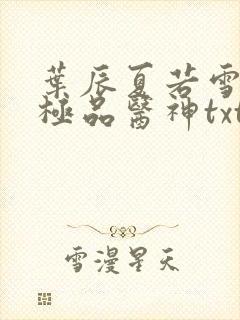 葉辰夏若雪
極品醫神txt
雪漫星天